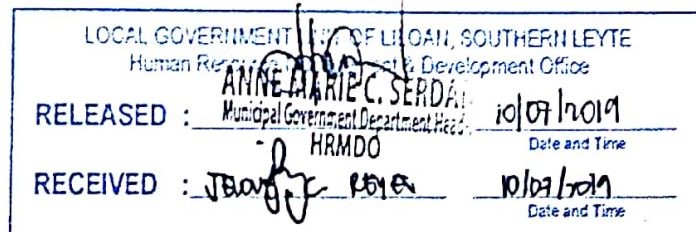 LOCAL GOVERNMENT UNIT OF LILOAN, SOUTHERN LEYTE
Human Resource & Development Office
ANNE MARIE C. SERDAN
Municipal Government Department Head
HRMDO
RELEASED : 10/07/2019
Date and Time
RECEIVED : REYES 10/07/2019
Date and Time